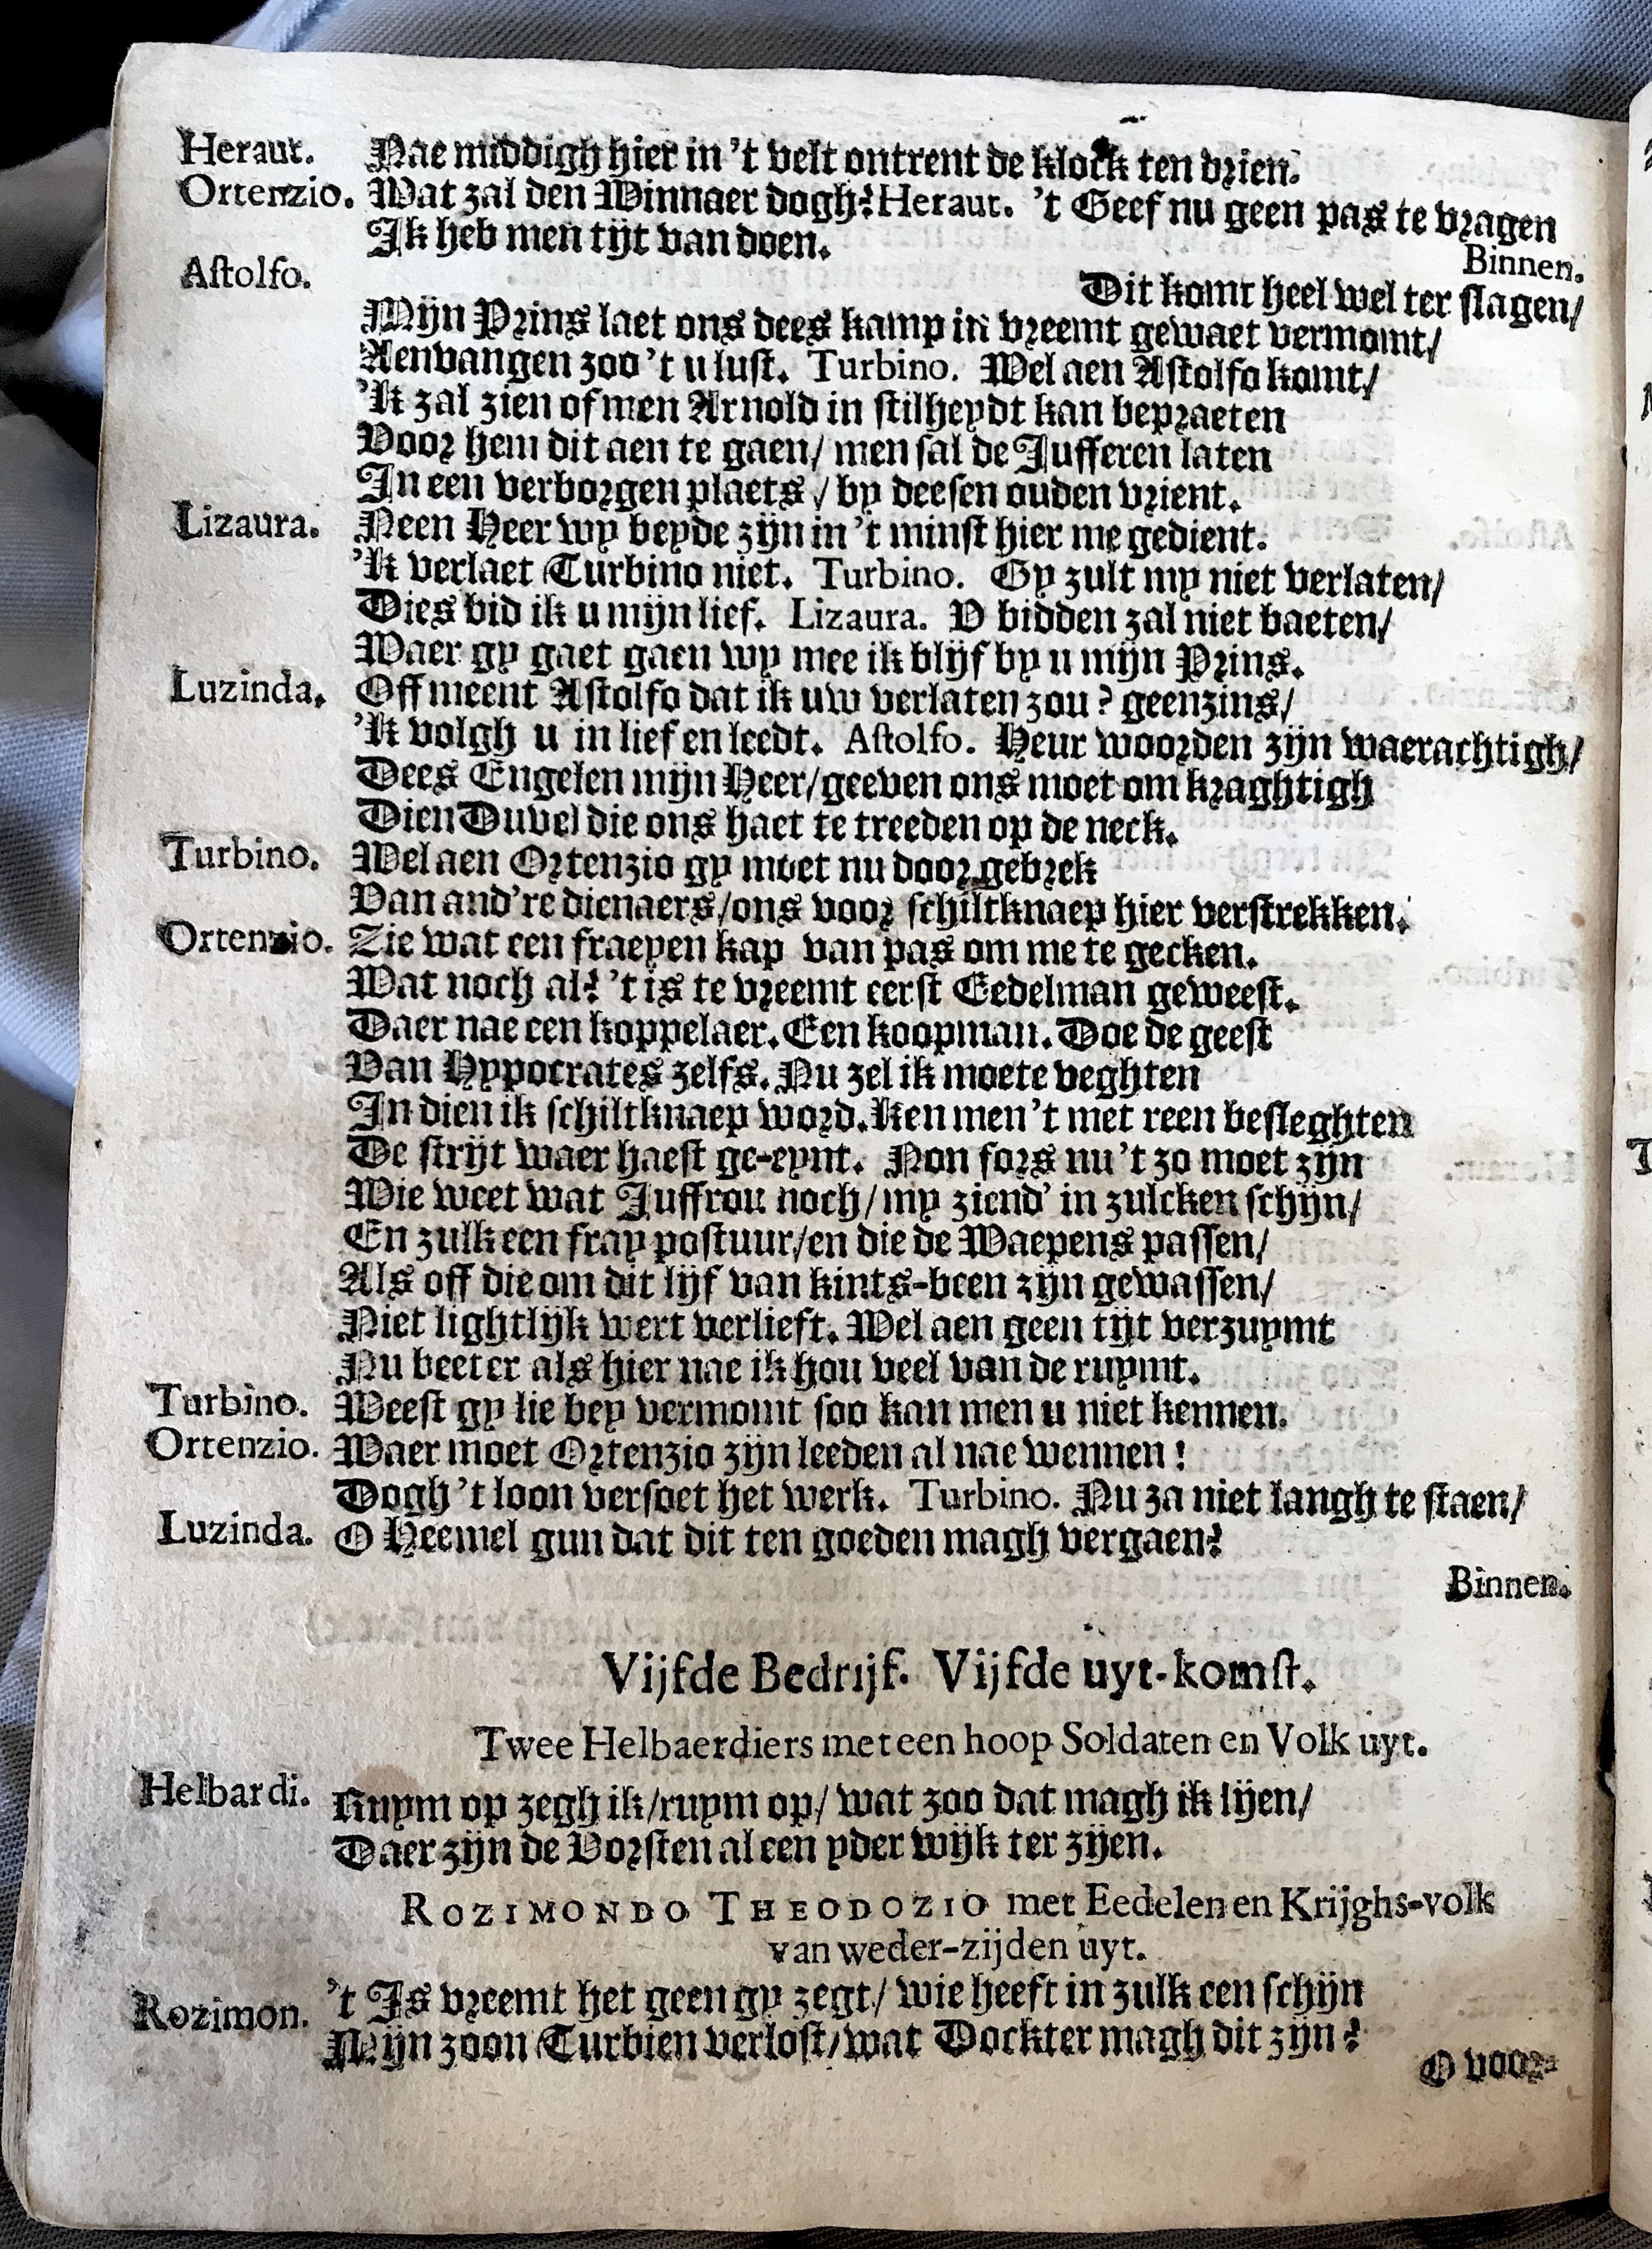 Heraut. Nae middigh hier in 't velt ontrent de klock ten drien.
Ortenzio. Wat zal den Winnaer dogh? Heraut. 't Geef nu geen pas te vragen
Ik heb men tijt van doen.
Binnen.
Astolfo. Dit komt heel wel ter slagen/
Mijn Prins laet ons dees kamp in vreemt gewaet vermomt/
Aenvangen zoo 't u lust. Turbino. Wel aen Astolfo komt/
'Ik zal zien of men Arnold in stilheydt kan bepraeten
Voor hem dit aen te gaen/ men sal de Jufferen laten
In een verborgen plaets / by deesen ouden vrient.
Lizaura. Neen Heer wy beyde zijn in 't minst hier me gedient.
'Ik verlaet Turbino niet. Turbino. Gy zult my niet verlaten/
Dies bid ik u mijn lief. Lizaura. V bidden zal niet baeten/
Waer gy gaet gaen wy mee ik blijf by u mijn Prins.
Luzinda. Off meent Astolfo dat ik uw verlaten zou? geenzins/
'Ik volgh u in lief en leedt. Astolfo. Heur woorden zijn waerachtigh/
Dees Engelen mijn Heer/ geeven ons moet om kraghtigh
Dien Duvel die ons haet te treeden op de neck.
Turbino. Wel aen Ortenzio gy moet nu door gebrek
Van and're dienaers/ ons voor schiltknaep hier verstrekken.
Ortenzio. Zie wat een fraeyen kap van pas om me te gecken.
Wat noch al? 't is te vreemt eerst Eedelman geweest.
Daer nae een koppelaer. Een koopman. Doe de geest
Van Hypocrates zelfs. Nu zel ik moete veghten
In dien ik schiltknaep word. Ken men 't met reen besleghten
De strijt waer haest ge-eynt. Non fors nu 't zo moet zijn
Wie weet wat Juffrou noch/ my ziend' in zulcken schijn/
En zulk een fray postuur/ en die de Waepens passen/
Als off die om dit lijf van kints-been zijn gewassen/
Niet lightlijk wert verlieft. Wel aen geen tijt verzuymt
Nu beeter als hier nae ik hou veel van de ruymt.
Turbino. Weest gy lie bey vermomt soo kan men u niet kennen.
Ortenzio. Waer moet Ortenzio zijn leeden al nae wennen!
Dogh 't loon versoet het werk. Turbino. Nu za niet langh te staen/
Luzinda. O Heemel gun dat dit ten goeden magh vergaen?
Binnen.
Vijfde Bedrijf. Vijfde uyt-komst.
Twee Helbaerdiers met een hoop Soldaten en Volk uyt.
Helbardi. Ruym op zegh ik/ ruym op/ wat zoo dat magh ik lijen/
Daer zijn de Vorsten al een yder wijk ter zijen.
ROZIMONDO THEODOZIO met Eedelen en Krijghs-volk
van weder-zijden uyt.
Rozimon. 't Is vreemt het geen gy zegt/ wie heeft in zulk een schijn
Mijn zoon Turbien verlost/ wat Dockter magh dit zijn?
O voor-